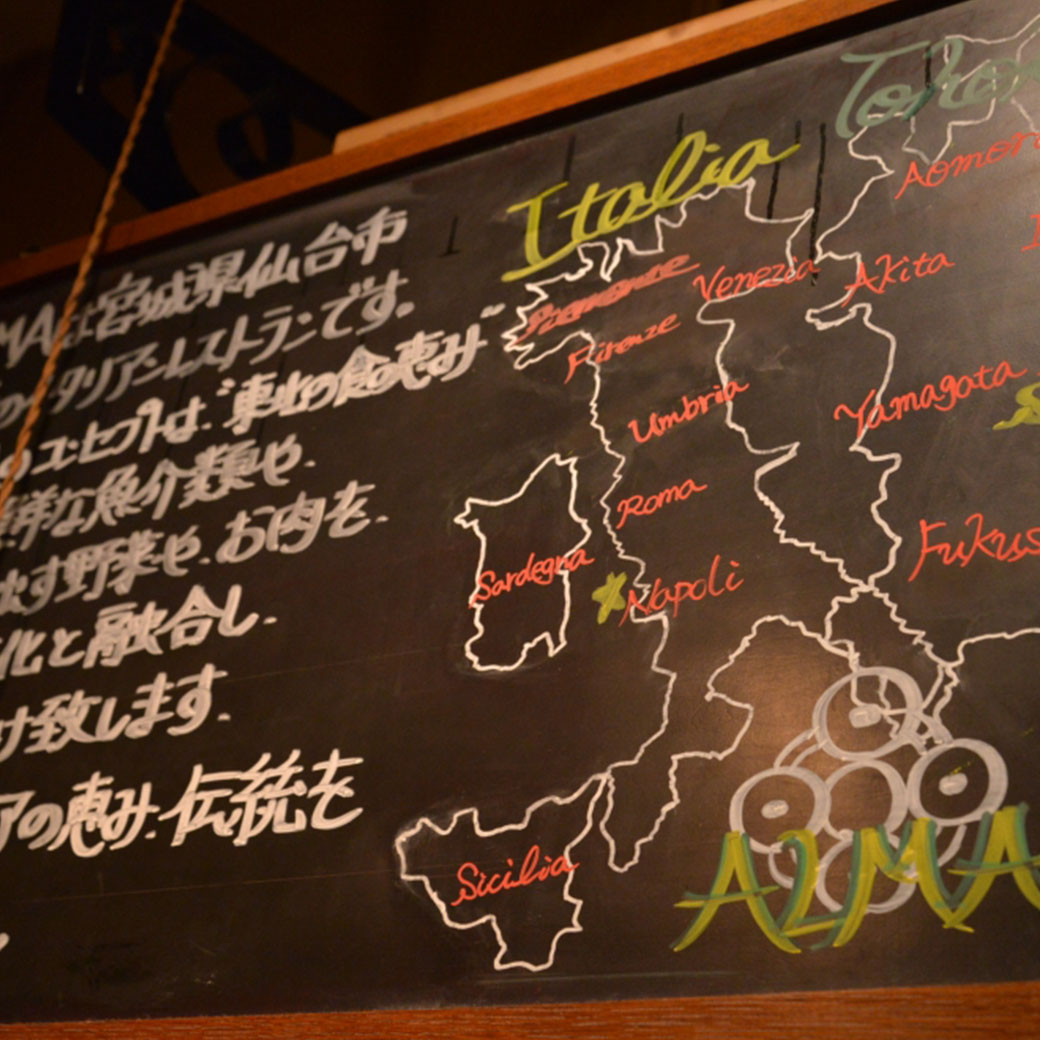 MAは宮城県仙台市
タリアンレストランです。
コンセプトは、“東北の食の恵み”
鮮な魚介類や、
野菜や、お肉を、
化と融合し、
け致します。
アの恵み、伝統を
Italia
Aomor
Piemonte
Venezia
Akita
Firenze
Umbria
Yamagata
Roma
Sardegna
Napoli
Fukus
Sicilia
ALMA